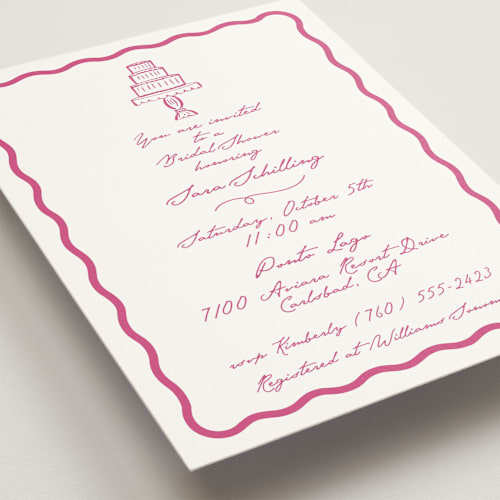 You are invited
to a
Bridal Shower
honoring
Sara Schilling
Saturday, October 5th
11:00 am
Ponto Lago
7100 Aviara Resort Drive
Carlsbad, CA
rsvp Kimberly (760) 555-2423
Registered at Williams Sonoma